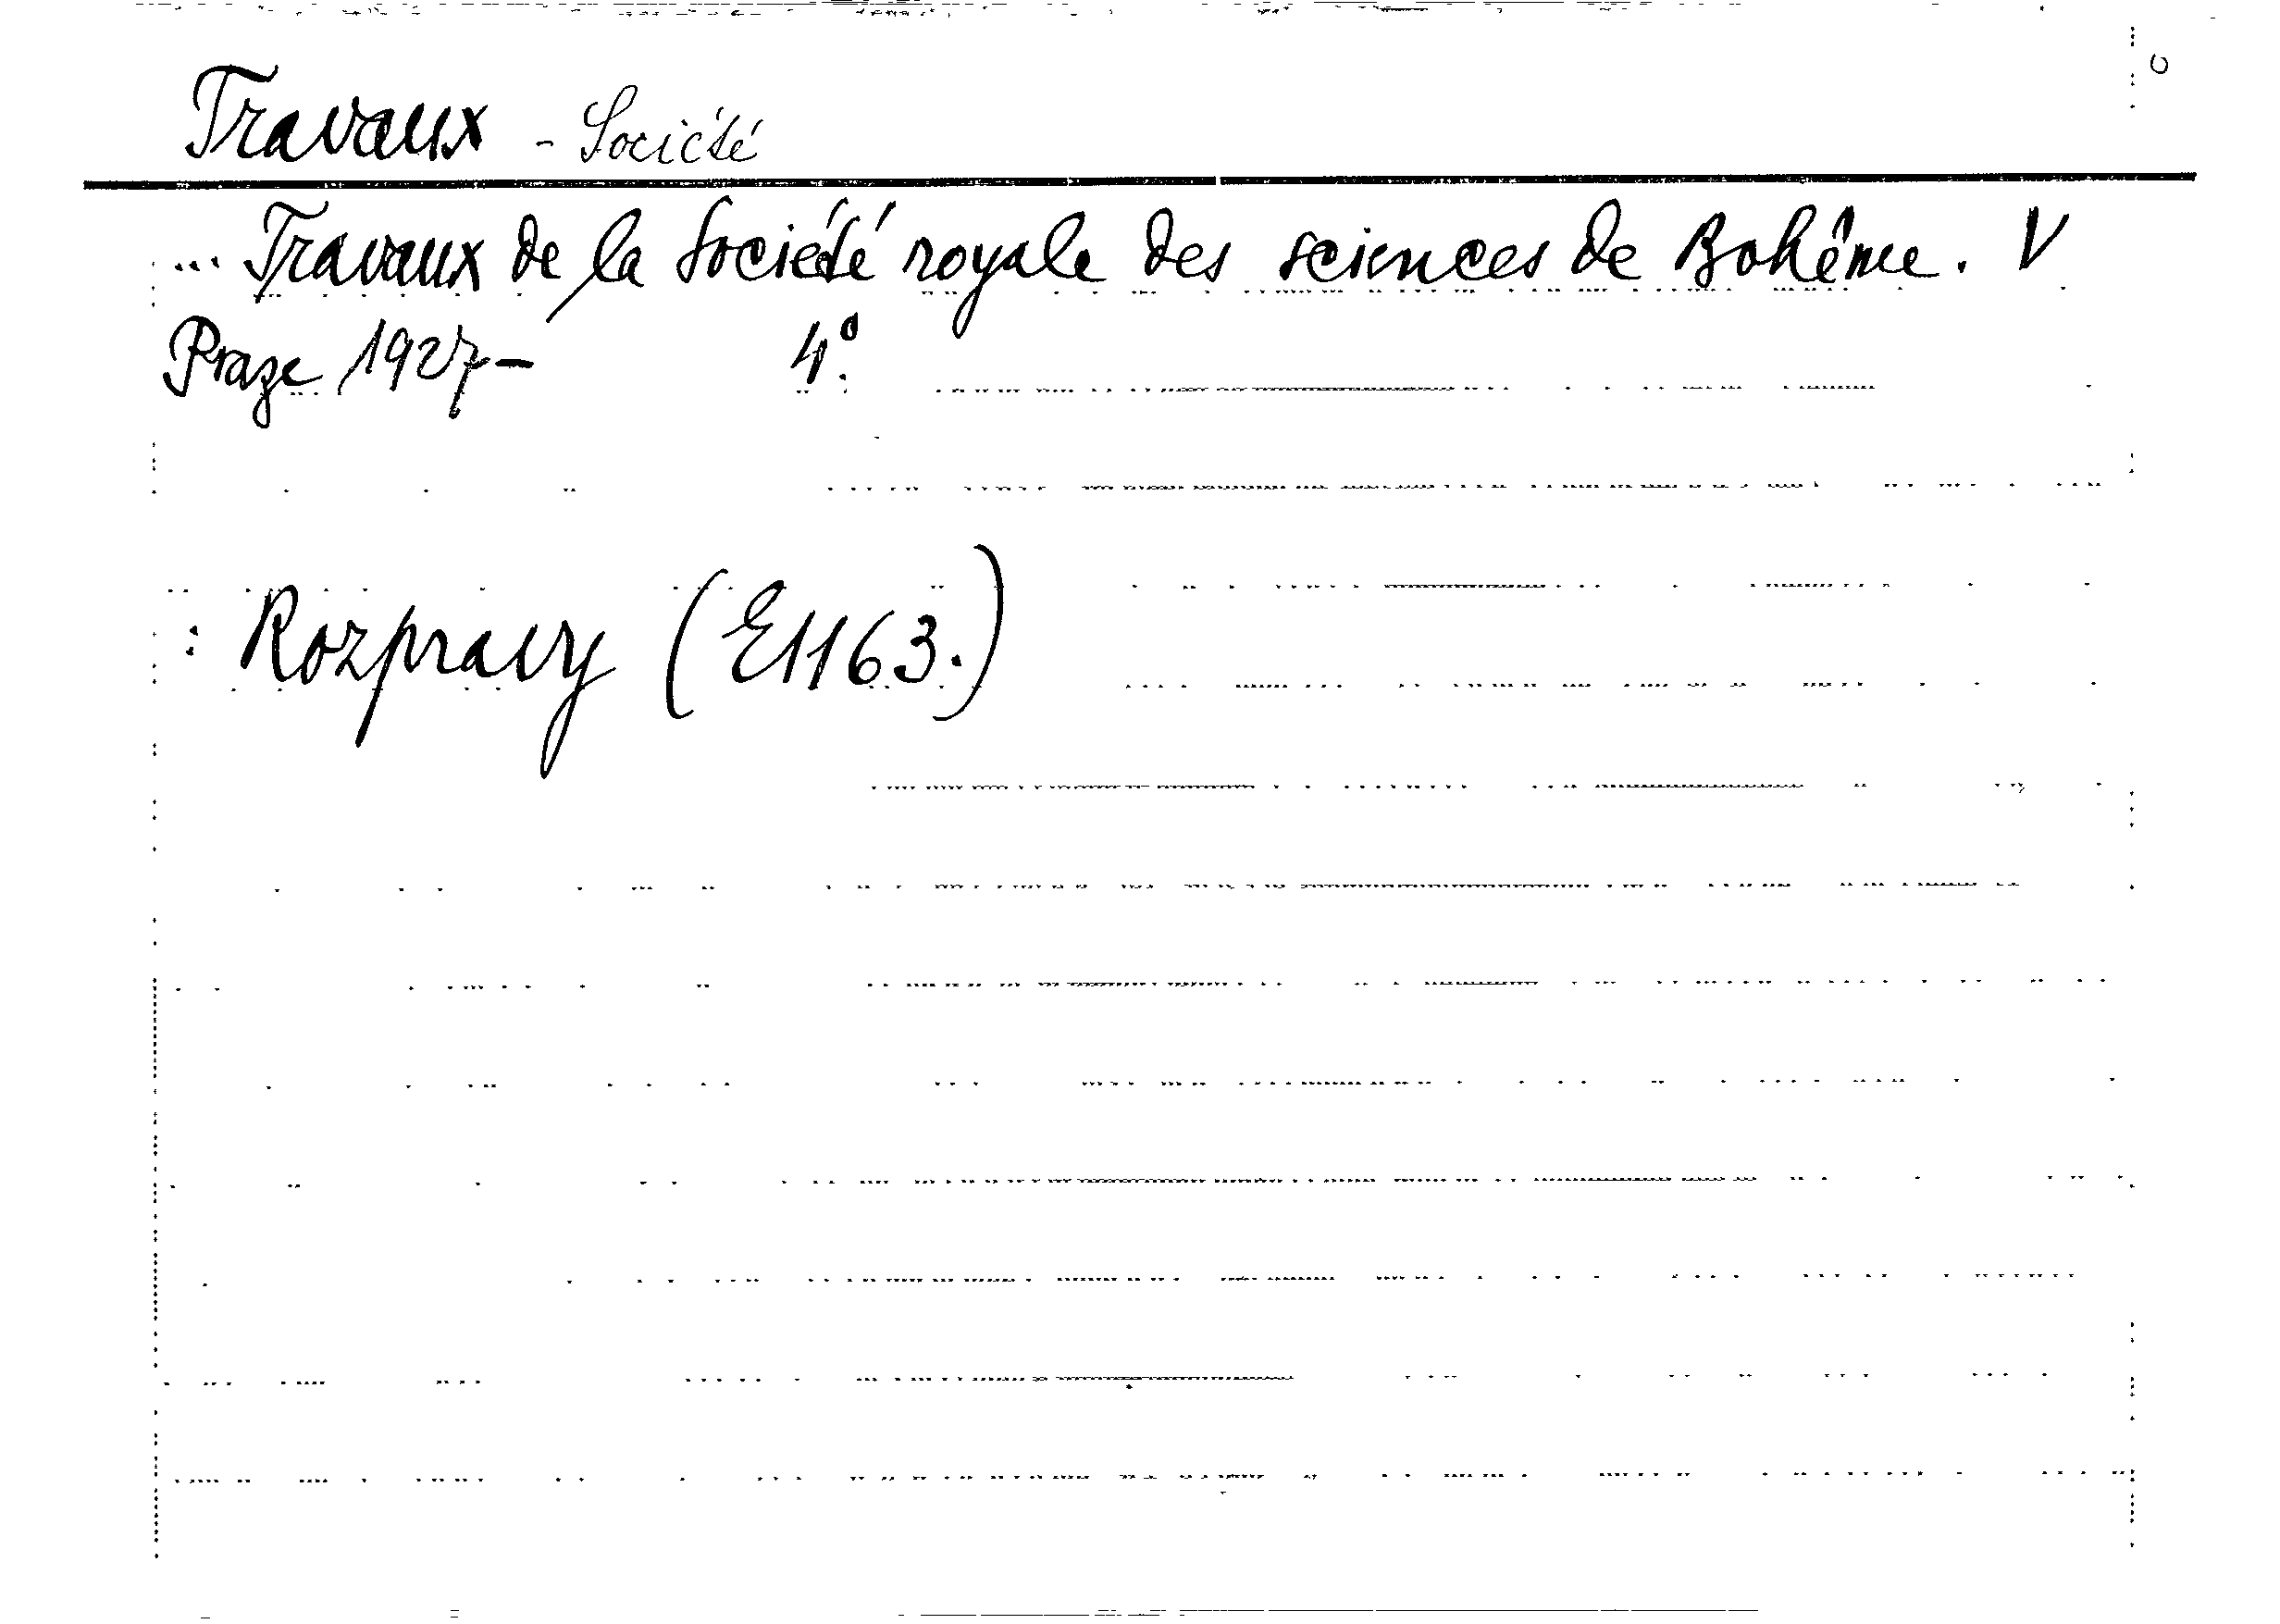 Travaux - Société
... Travaux de la Société royale des sciences de Bohême. V
Praze 1927- 4°.
: Rozpravy (E1163.)